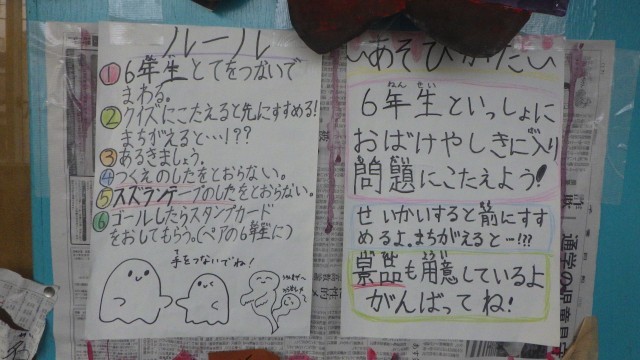 ルール
① 6年生とてをつないで
まわる。
② クイズにこたえると先にすすめる!
まちがえると…!??
③ あるきましょう。
④ つくえのしたをとおらない。
⑤ スズランテープのしたをとおらない。
⑥ ゴールしたらスタンプカード
をおしてもらう。(ペアの6年生に)
手をつないでね!
あそびかた
6年生といっしょに
おばけやしきに入り
問題にこたえよう!
せいかいすると前にすす
めるよ。まちがえると…!??
景品も用意しているよ
がんばってね!